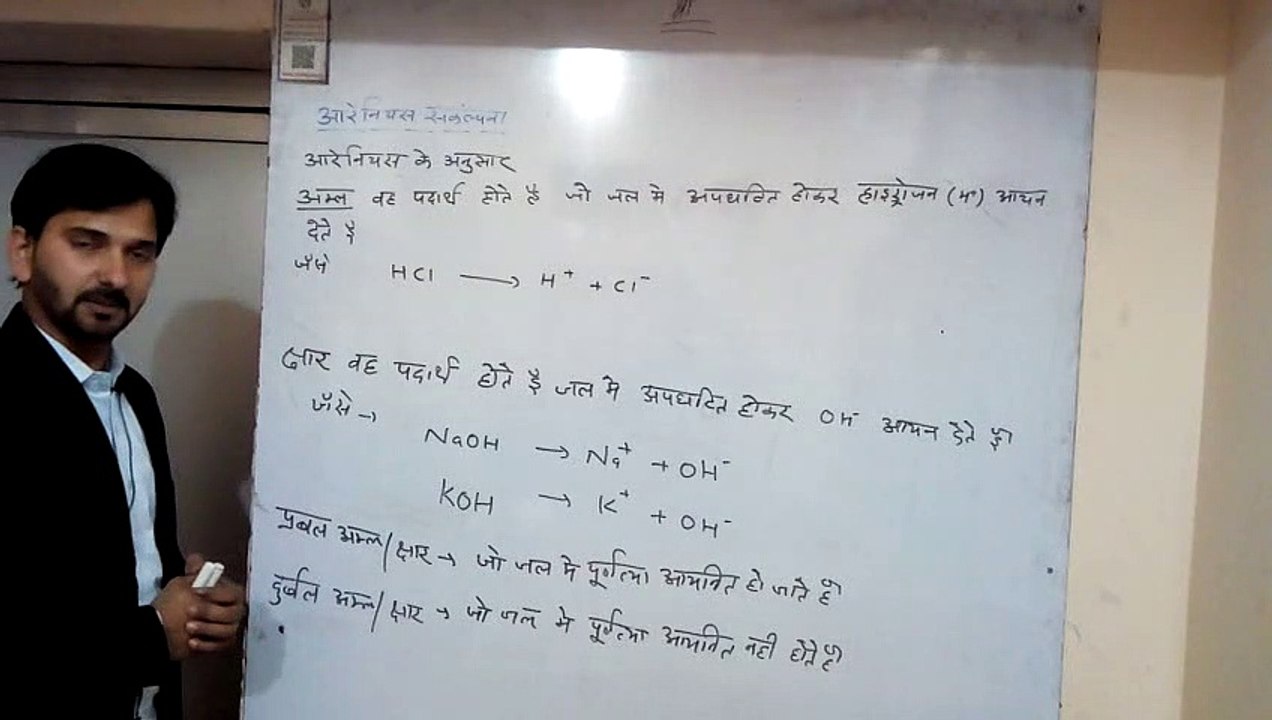 आरेनियस संकल्पना
आरेनियस के अनुसार
अम्ल वह पदार्थ होते है जो जल मे अपघटित होकर हाइड्रोजन (H⁺) आयन
देते है
जैसे HCl ⟶ H⁺ + Cl⁻
क्षार वह पदार्थ होते है जल मे अपघटित होकर OH⁻ आयन देते है।
जैसे →
NaOH → Na⁺ + OH⁻
KOH → K⁺ + OH⁻
प्रबल अम्ल/क्षार → जो जल मे पूर्णतया आयनित हो जाते है।
दुर्बल अम्ल/क्षार → जो जल मे पूर्णतया आयनित नही होते है।